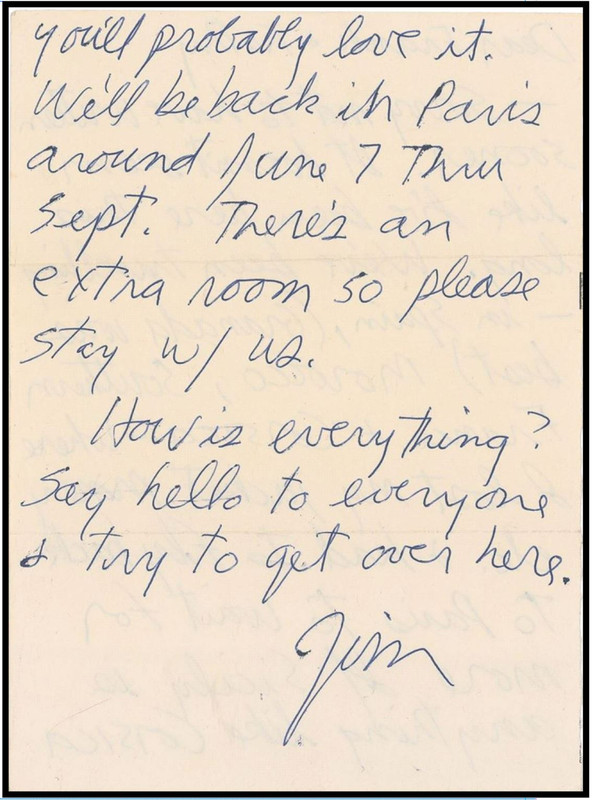 you'll probably love it.
We'll be back in Paris
around June 7 Thru
Sept. There's an
extra room so please
stay w/ us.
How is everything?
Say hello to everyone
& try to get over here.
Jim